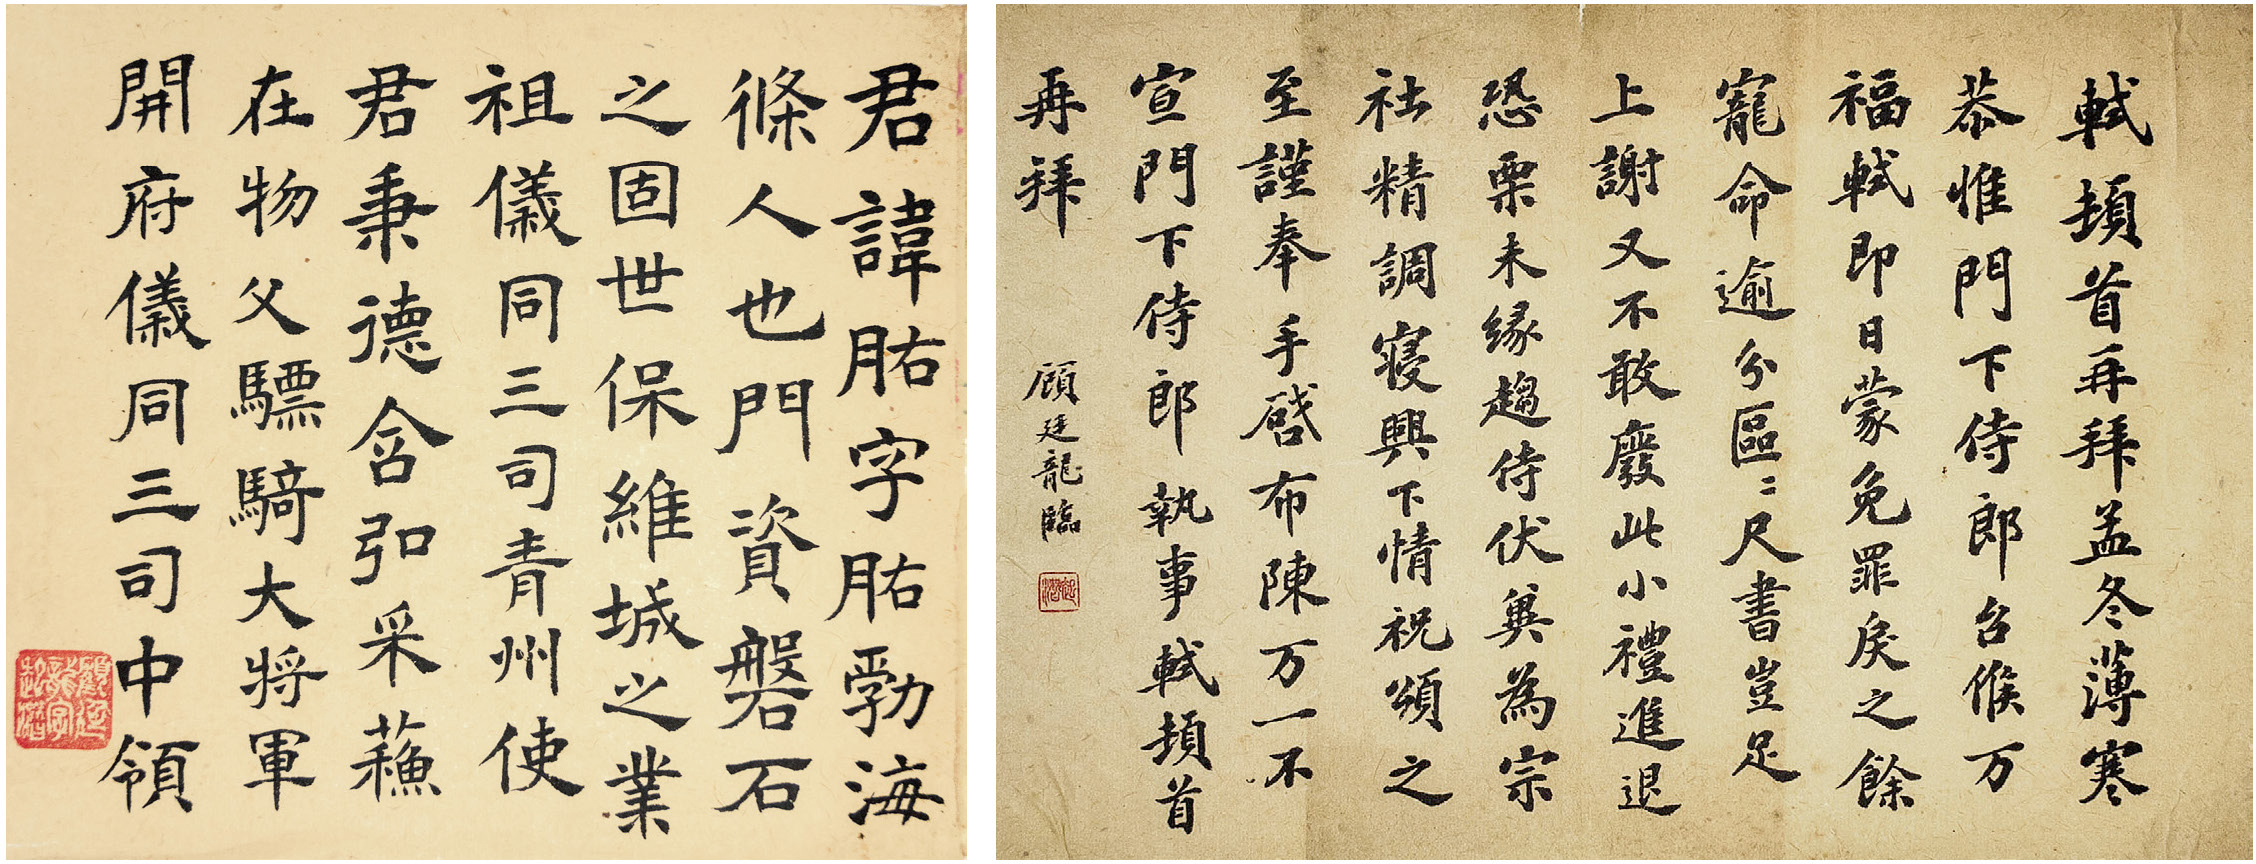 君諱字勃海
條人也門資磐石
之固世保維城之業
祖儀同三司青州使
君秉德含弘采蘓
在物父驃騎大將軍
開府儀同三司中領
顧廷龍字起潛
軾頓首再拜孟冬薄寒
恭惟門下侍郎台候万
福軾即日蒙免罪戾之餘
寵命逾分區〻尺書豈足
上謝又不敢廢此小禮進退
恐栗未緣趨侍伏冀為宗
社精調寢興下情祝頌之
至謹奉手啓布陳万一不
宣門下侍郎執事軾頓首
再拜
顧廷龍臨
起潛